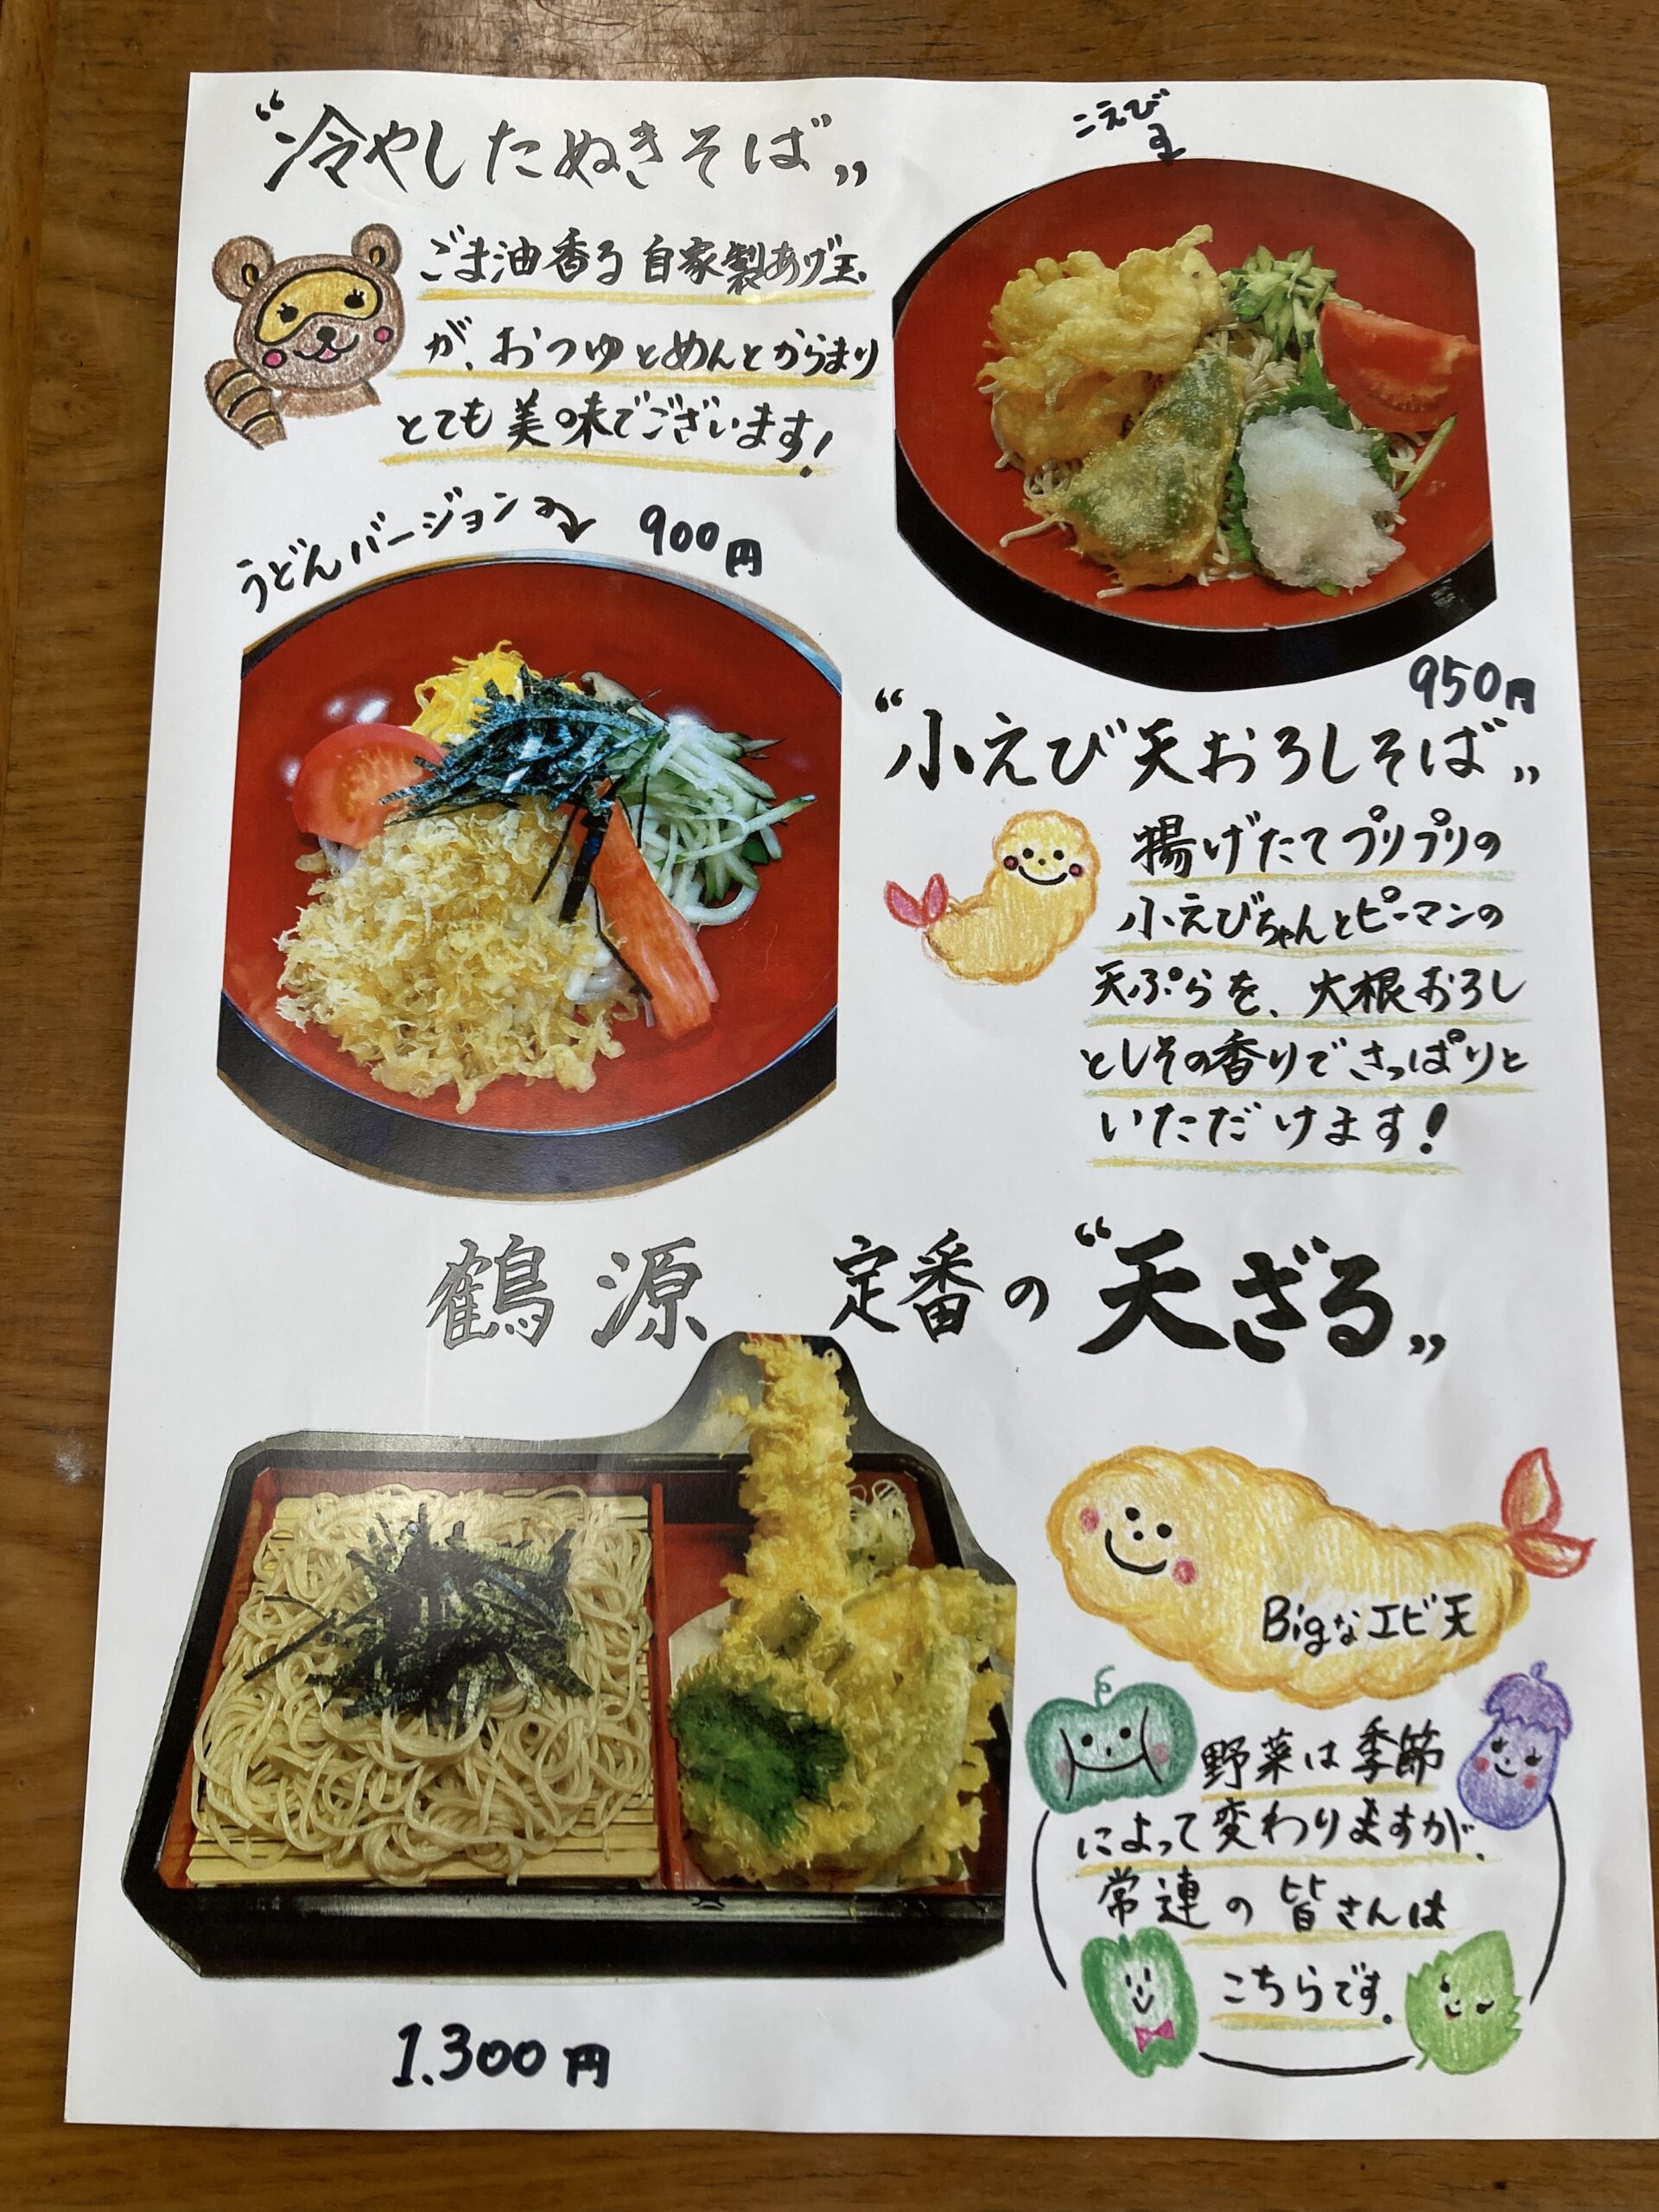 “冷やしたぬきそば”
ごま油香る自家製あげ玉
が、おつゆとめんとからまり
とても美味でございます!
うどんバージョン
900円
こえび
950円
“小えび天おろしそば”
揚げたてプリプリの
小えびちゃんとピーマンの
天ぷらを、大根おろし
としその香りでさっぱりと
いただけます!
鶴源 定番の“天ざる”
Bigなエビ天
野菜は季節
によって変わりますが、
常連の皆さんは
こちらです.
1.300円